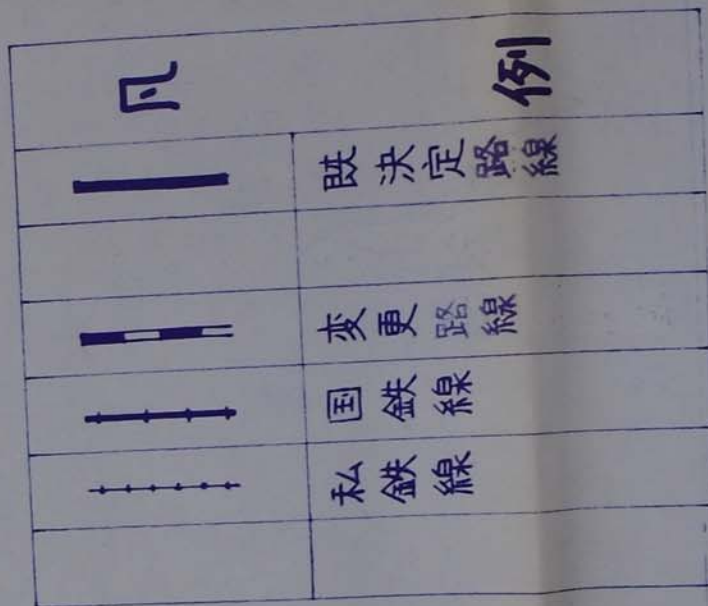 凡例
既決定路線
変更路線
国鉄線
私鉄線